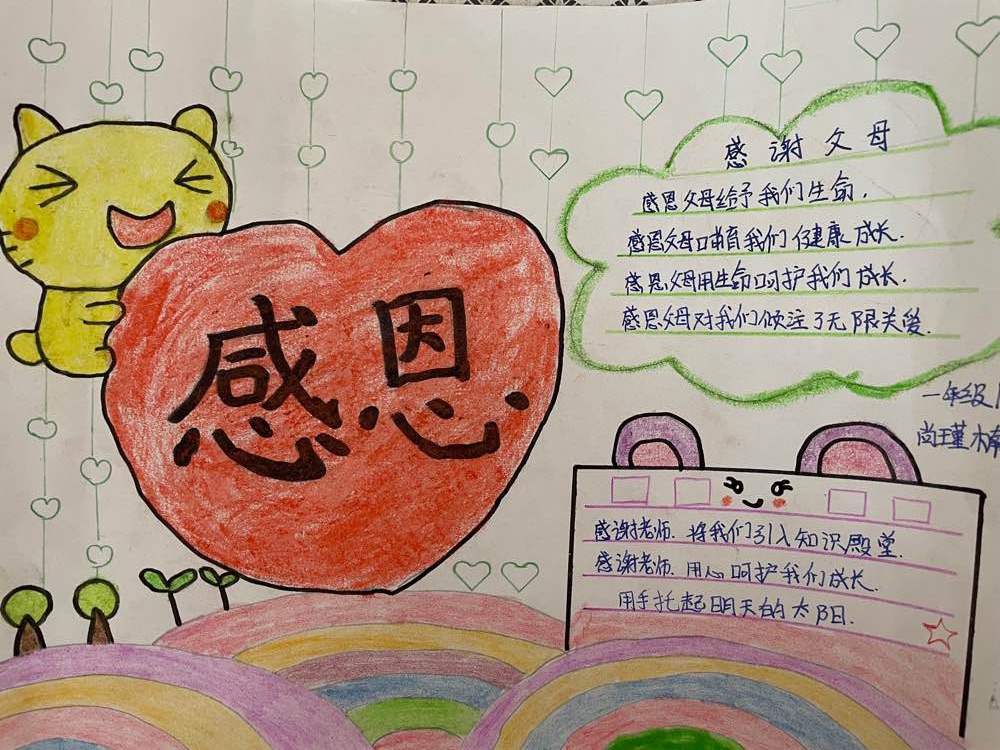 感恩
感谢父母
感恩父母给予我们生命,
感恩父母哺育我们健康成长.
感恩父母用生命呵护我们成长.
感恩父母对我们倾注了无限关爱.
一年级
尚瑾
感谢老师.将我们引入知识殿堂.
感谢老师.用心呵护我们成长.
用手托起明天的太阳.